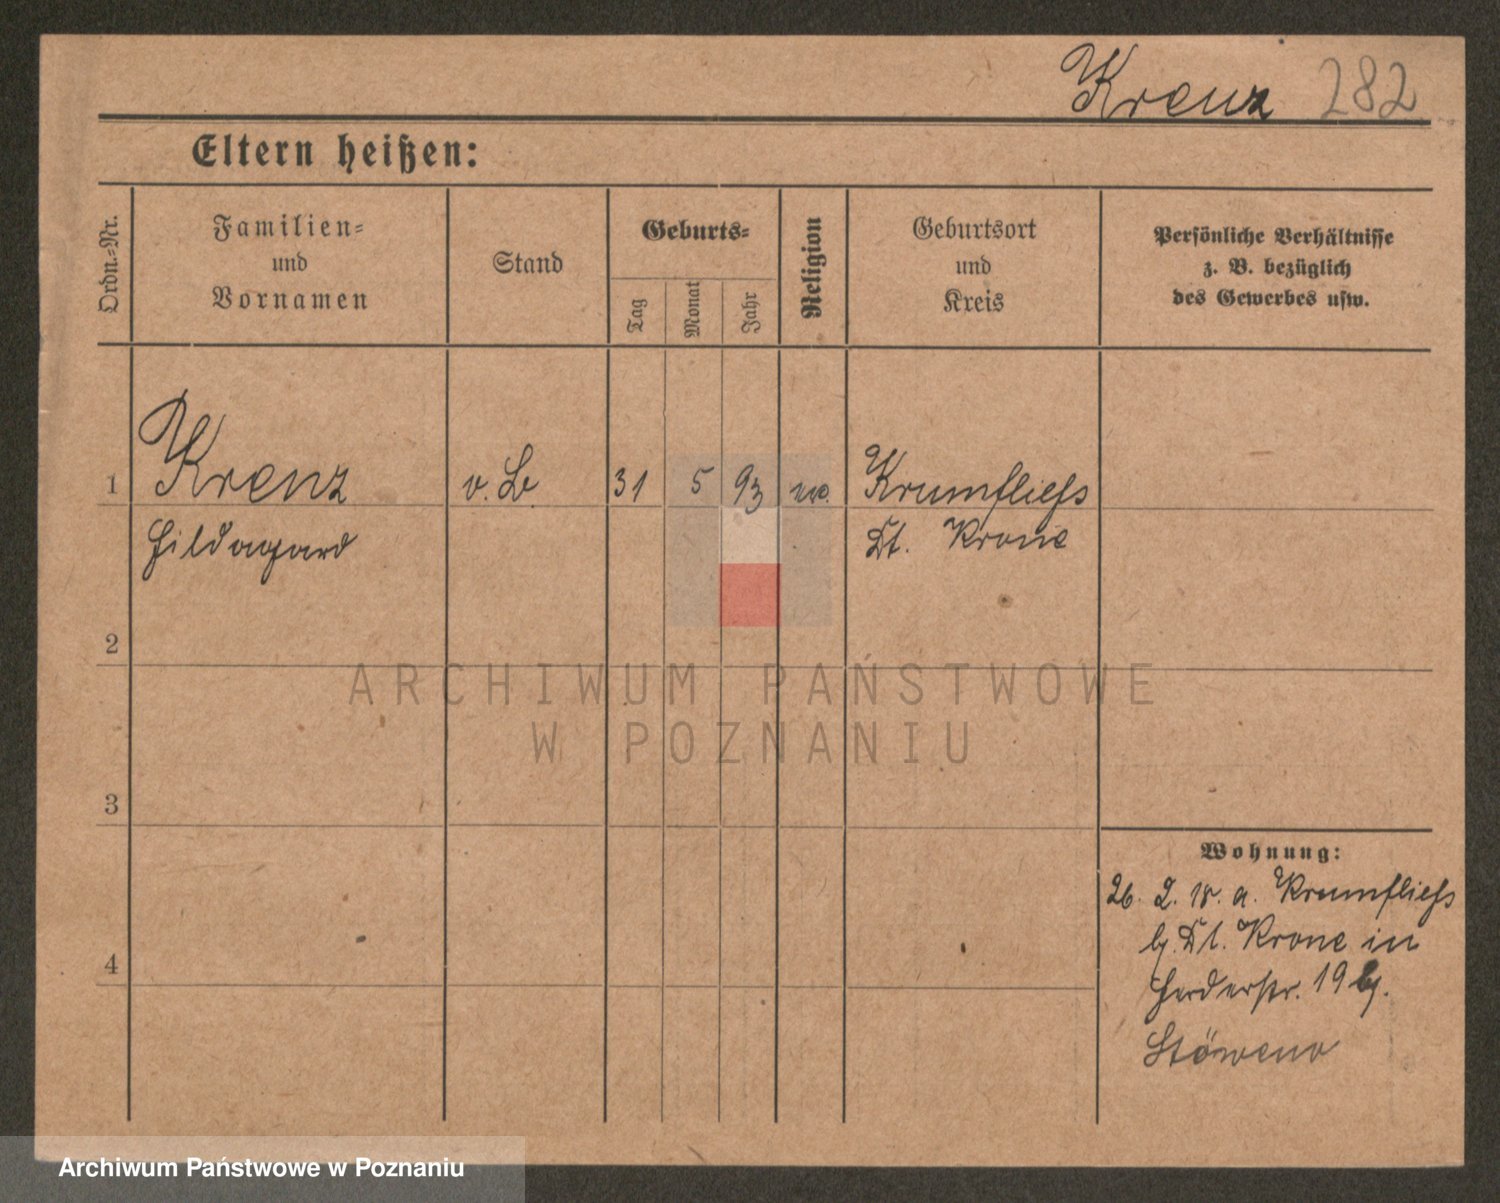 Krenz 282
Eltern heißen:
Ordn.-Nr.
Familien-
und
Vornamen
Stand
Geburts-
Tag
Monat
Jahr
Religion
Geburtsort
und
Kreis
Persönliche Verhältnisse
z. B. bezüglich
des Gewerbes usw.
1 Krenz 31 5 93 Krumfließ
Hildegard Dt. Krone
2
3
4
Wohnung:
26. 2. 18. a. Krumfließ
b. Dt. Krone in
Herderstr. 19 b.
Stöwener
ARCHIWUM PAŃSTWOWE
W POZNANIU
Archiwum Państwowe w Poznaniu